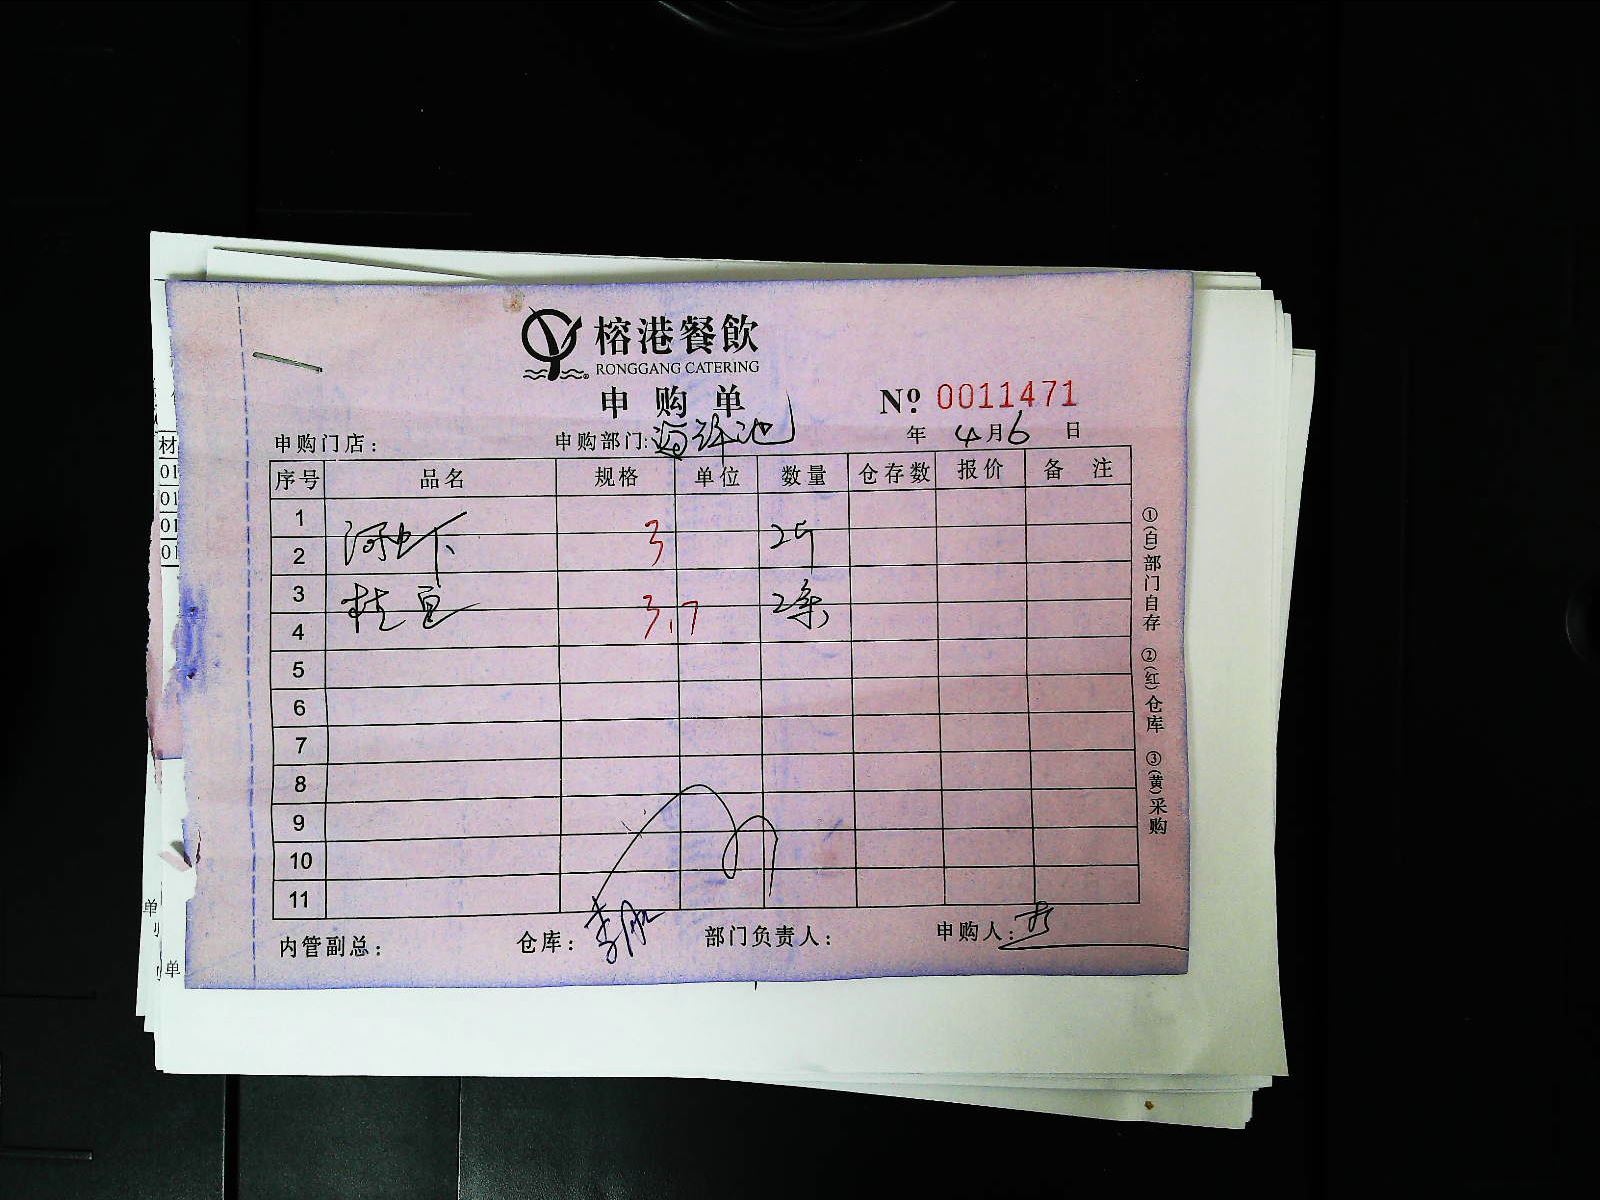 榕港餐飲
RONGGANG CATERING
申购单
№ 0011471
申购门店: 申购部门:海鲜池 年 4月6 日
序号 品名 规格 单位 数量 仓存数 报价 备 注
1
2 河虾 3 2斤
3
4 桂鱼 3.7 2条
5
6
7
8
9
10
11
内管副总: 仓库: 部门负责人: 申购人:
①(白)部门自存 ②(红)仓库 ③(黄)采购
材
01
01
01
01
单
单